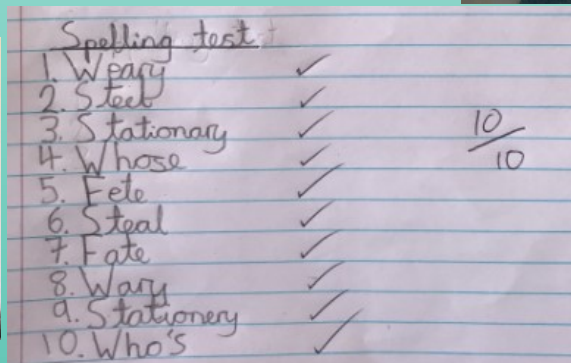 Spelling test
1. Weary
2. Steel
3. Stationary
4. Whose
5. Fete
6. Steal
7. Fate
8. Wary
9. Stationery
10. Who's
10/10